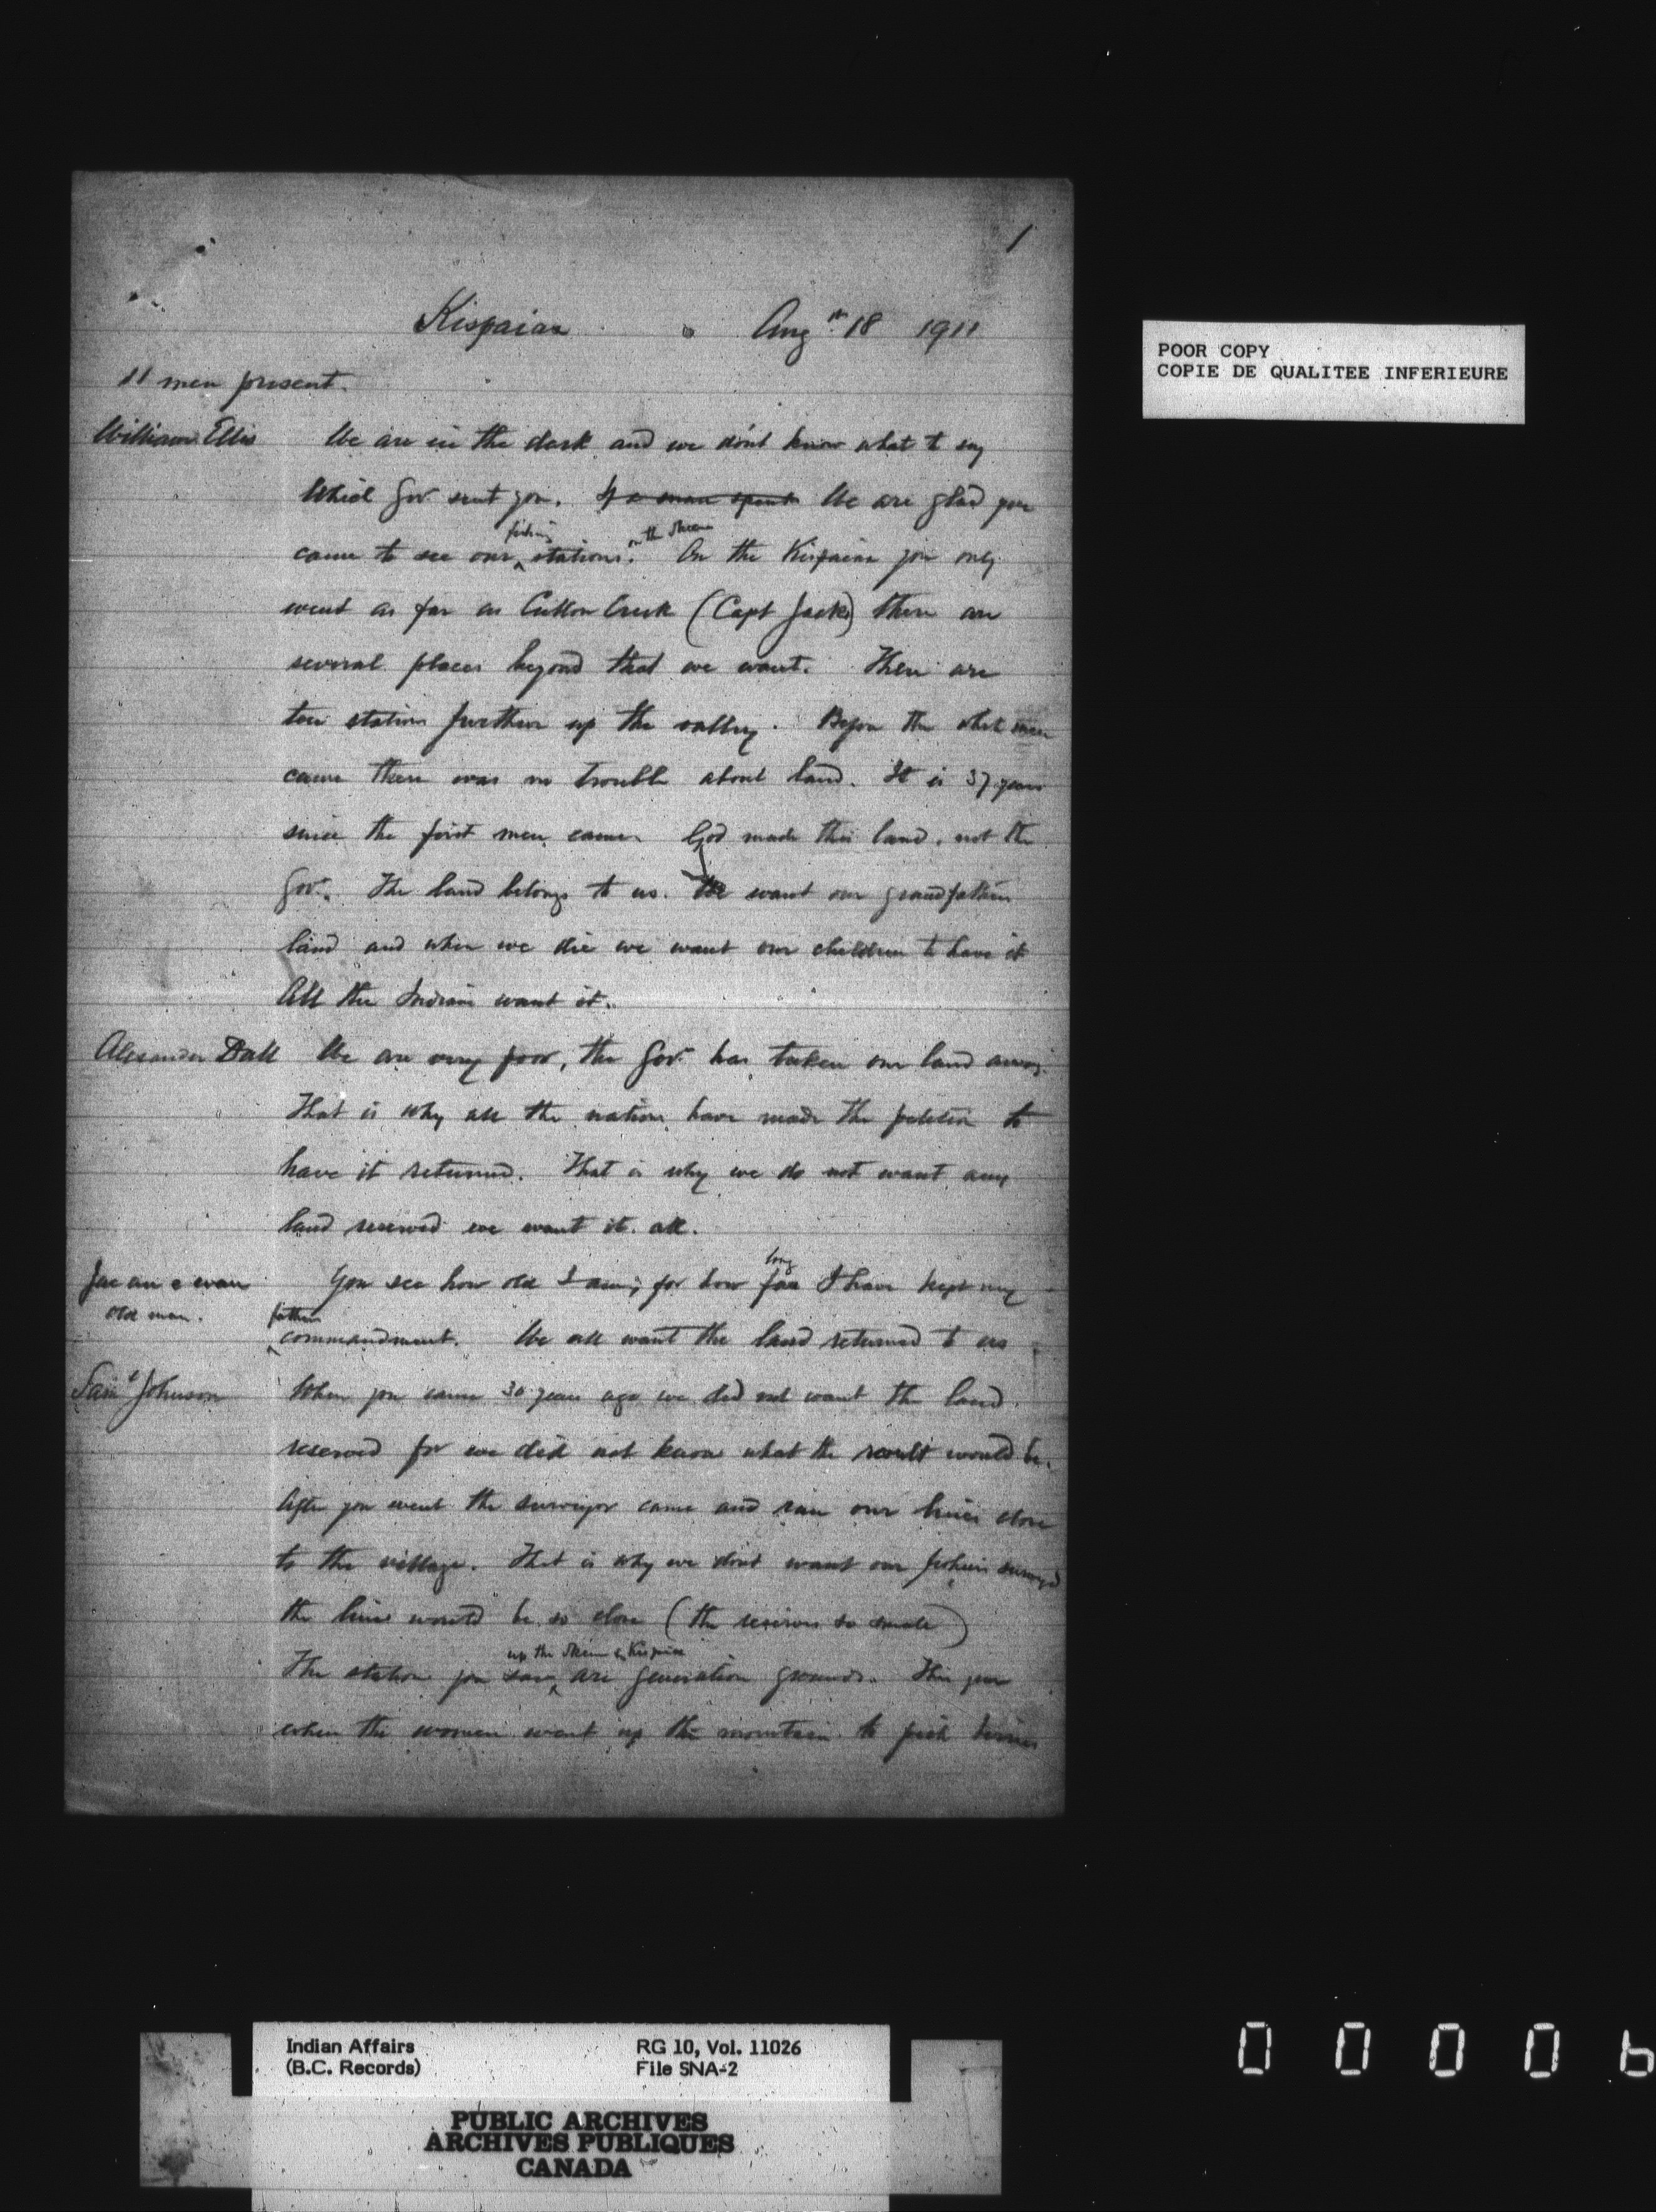 1
Kispaiax Augst 18 1911
11 men present.
William Ellis We are in the dark and we don't know what to say
Which Govt sent you. If a man spent We are glad you
fishing on the Skeena
came to see our stations. On the Kispaiax you only
went as far as Cullon Creek (Capt Jack) there are
several places beyond that we want. There are
two stations further up the valley. Before the white men
came there was no trouble about land. It is 37 years
since the first men came. God made this land, not the
Govt. The land belongs to us. We want our grandfathers
land and when we die we want our children to have it
All the Indians want it.
Alexander Dall We are very poor, the Govt has taken our land away.
That is why all the nations have made the petition to
have it returned. That is why we do not want any
land reserved we want it all.
long
You see how old I am, for how far I have kept my
old man. fathers
commandment. We all want the land returned to us
Saml Johnson When you came 30 years ago we did not want the land
reserved for we did not know what the result would be.
After you went the surveyor came and ran our lines close
to the village. That is why we dont want our fisheries surveyed
the lines would be so close (the reserves so small)
up the Skeena & Kispaiax
The station you saw are generation grounds. This year
when the women went up the mountain to pick berries
POOR COPY
COPIE DE QUALITEE INFERIEURE
Indian Affairs RG 10, Vol. 11026
(B.C. Records) File SNA-2
PUBLIC ARCHIVES
ARCHIVES PUBLIQUES
CANADA
0 0 0 0 6